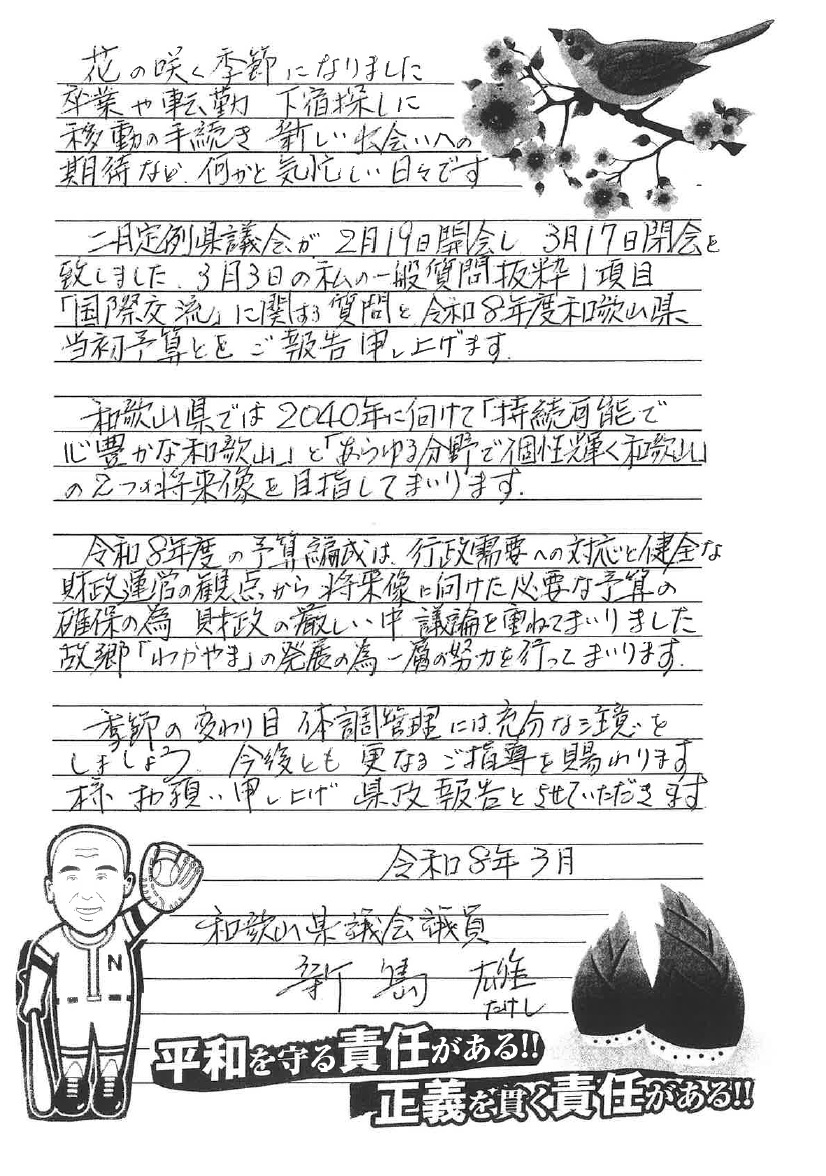 花の咲く季節になりました
卒業や転勤 下宿探しに
移動の手続き 新しい出会いへの
期待など、何かと気忙しい日々です
二月定例県議会が、2月19日開会し 3月17日閉会を
致しました、3月3日の私の一般質問抜粋1項目
「国際交流」に関する質問と、令和8年度和歌山県、
当初予算とを ご報告申し上げます。
和歌山県では2040年に向けて「持続可能で
心豊かな和歌山」と「あらゆる分野で個性輝く和歌山」
の2つの将来像を目指してまいります。
令和8年度の予算編成は、行政需要への対応と健全な
財政運営の観点から 将来像に向けた必要な予算の
確保の為 財政の厳しい中 議論を重ねてまいりました
故郷「わかやま」の発展の為 一層の努力を行ってまいります。
季節の変わり目 体調管理には充分な注意を
しましょう。今後とも 更なるご指導を賜わります
様、お願い申し上げ 県政報告とさせていただきます
令和8年3月
和歌山県議会議員
新島 雄
たけし
N
平和を守る責任がある!!
正義を貫く責任がある!!